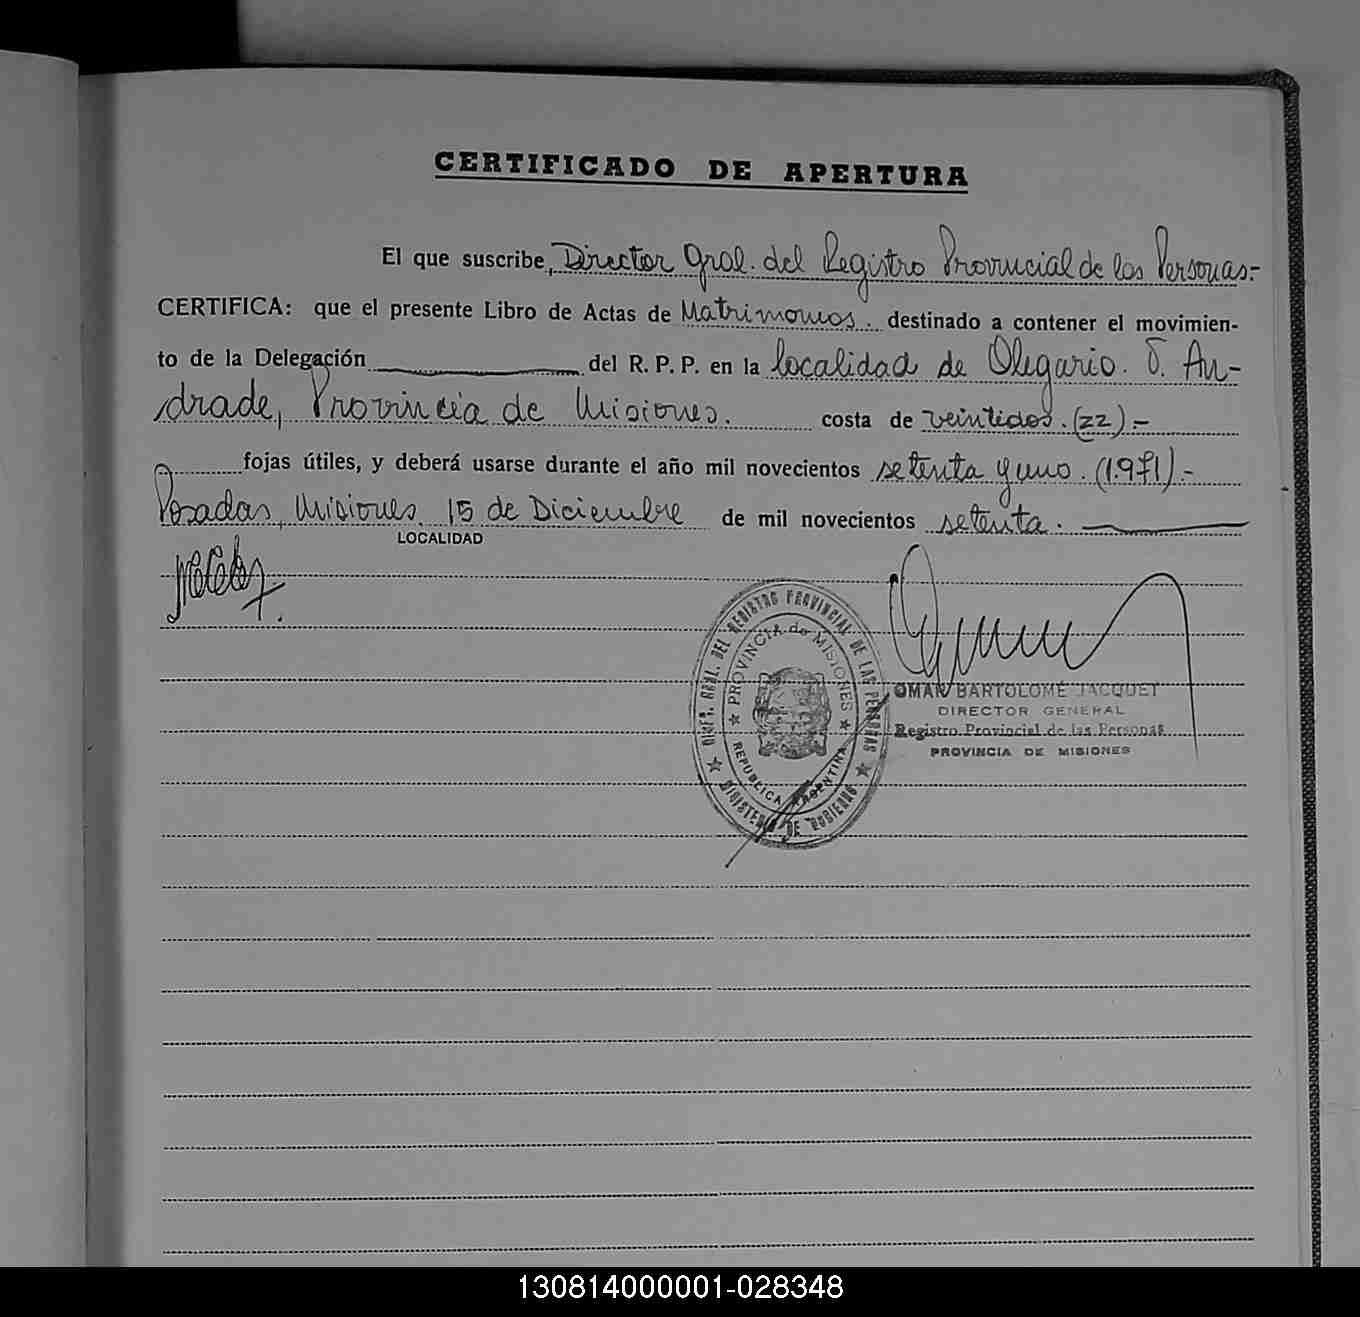 CERTIFICADO DE APERTURA
El que suscribe, Director Gral. del Registro Provincial de las Personas:-
CERTIFICA: que el presente Libro de Actas de Matrimonios. destinado a contener el movimien-
to de la Delegación del R. P. P. en la localidad de Olegario. V. An-
drade, Provincia de Misiones. costa de veintidos. (22).-
fojas útiles, y deberá usarse durante el año mil novecientos setenta y uno. (1.971).-
Posadas, Misiones. 15 de Diciembre de mil novecientos setenta.
LOCALIDAD
DIREC. GRAL. DEL REGISTRO PROVINCIAL DE LAS PERSONAS
PROVINCIA de MISIONES
REPUBLICA ARGENTINA
MINISTERIO DE GOBIERNO
OMAR BARTOLOMÉ JACQUET
DIRECTOR GENERAL
Registro Provincial de las Personas
PROVINCIA DE MISIONES
130814000001-028348